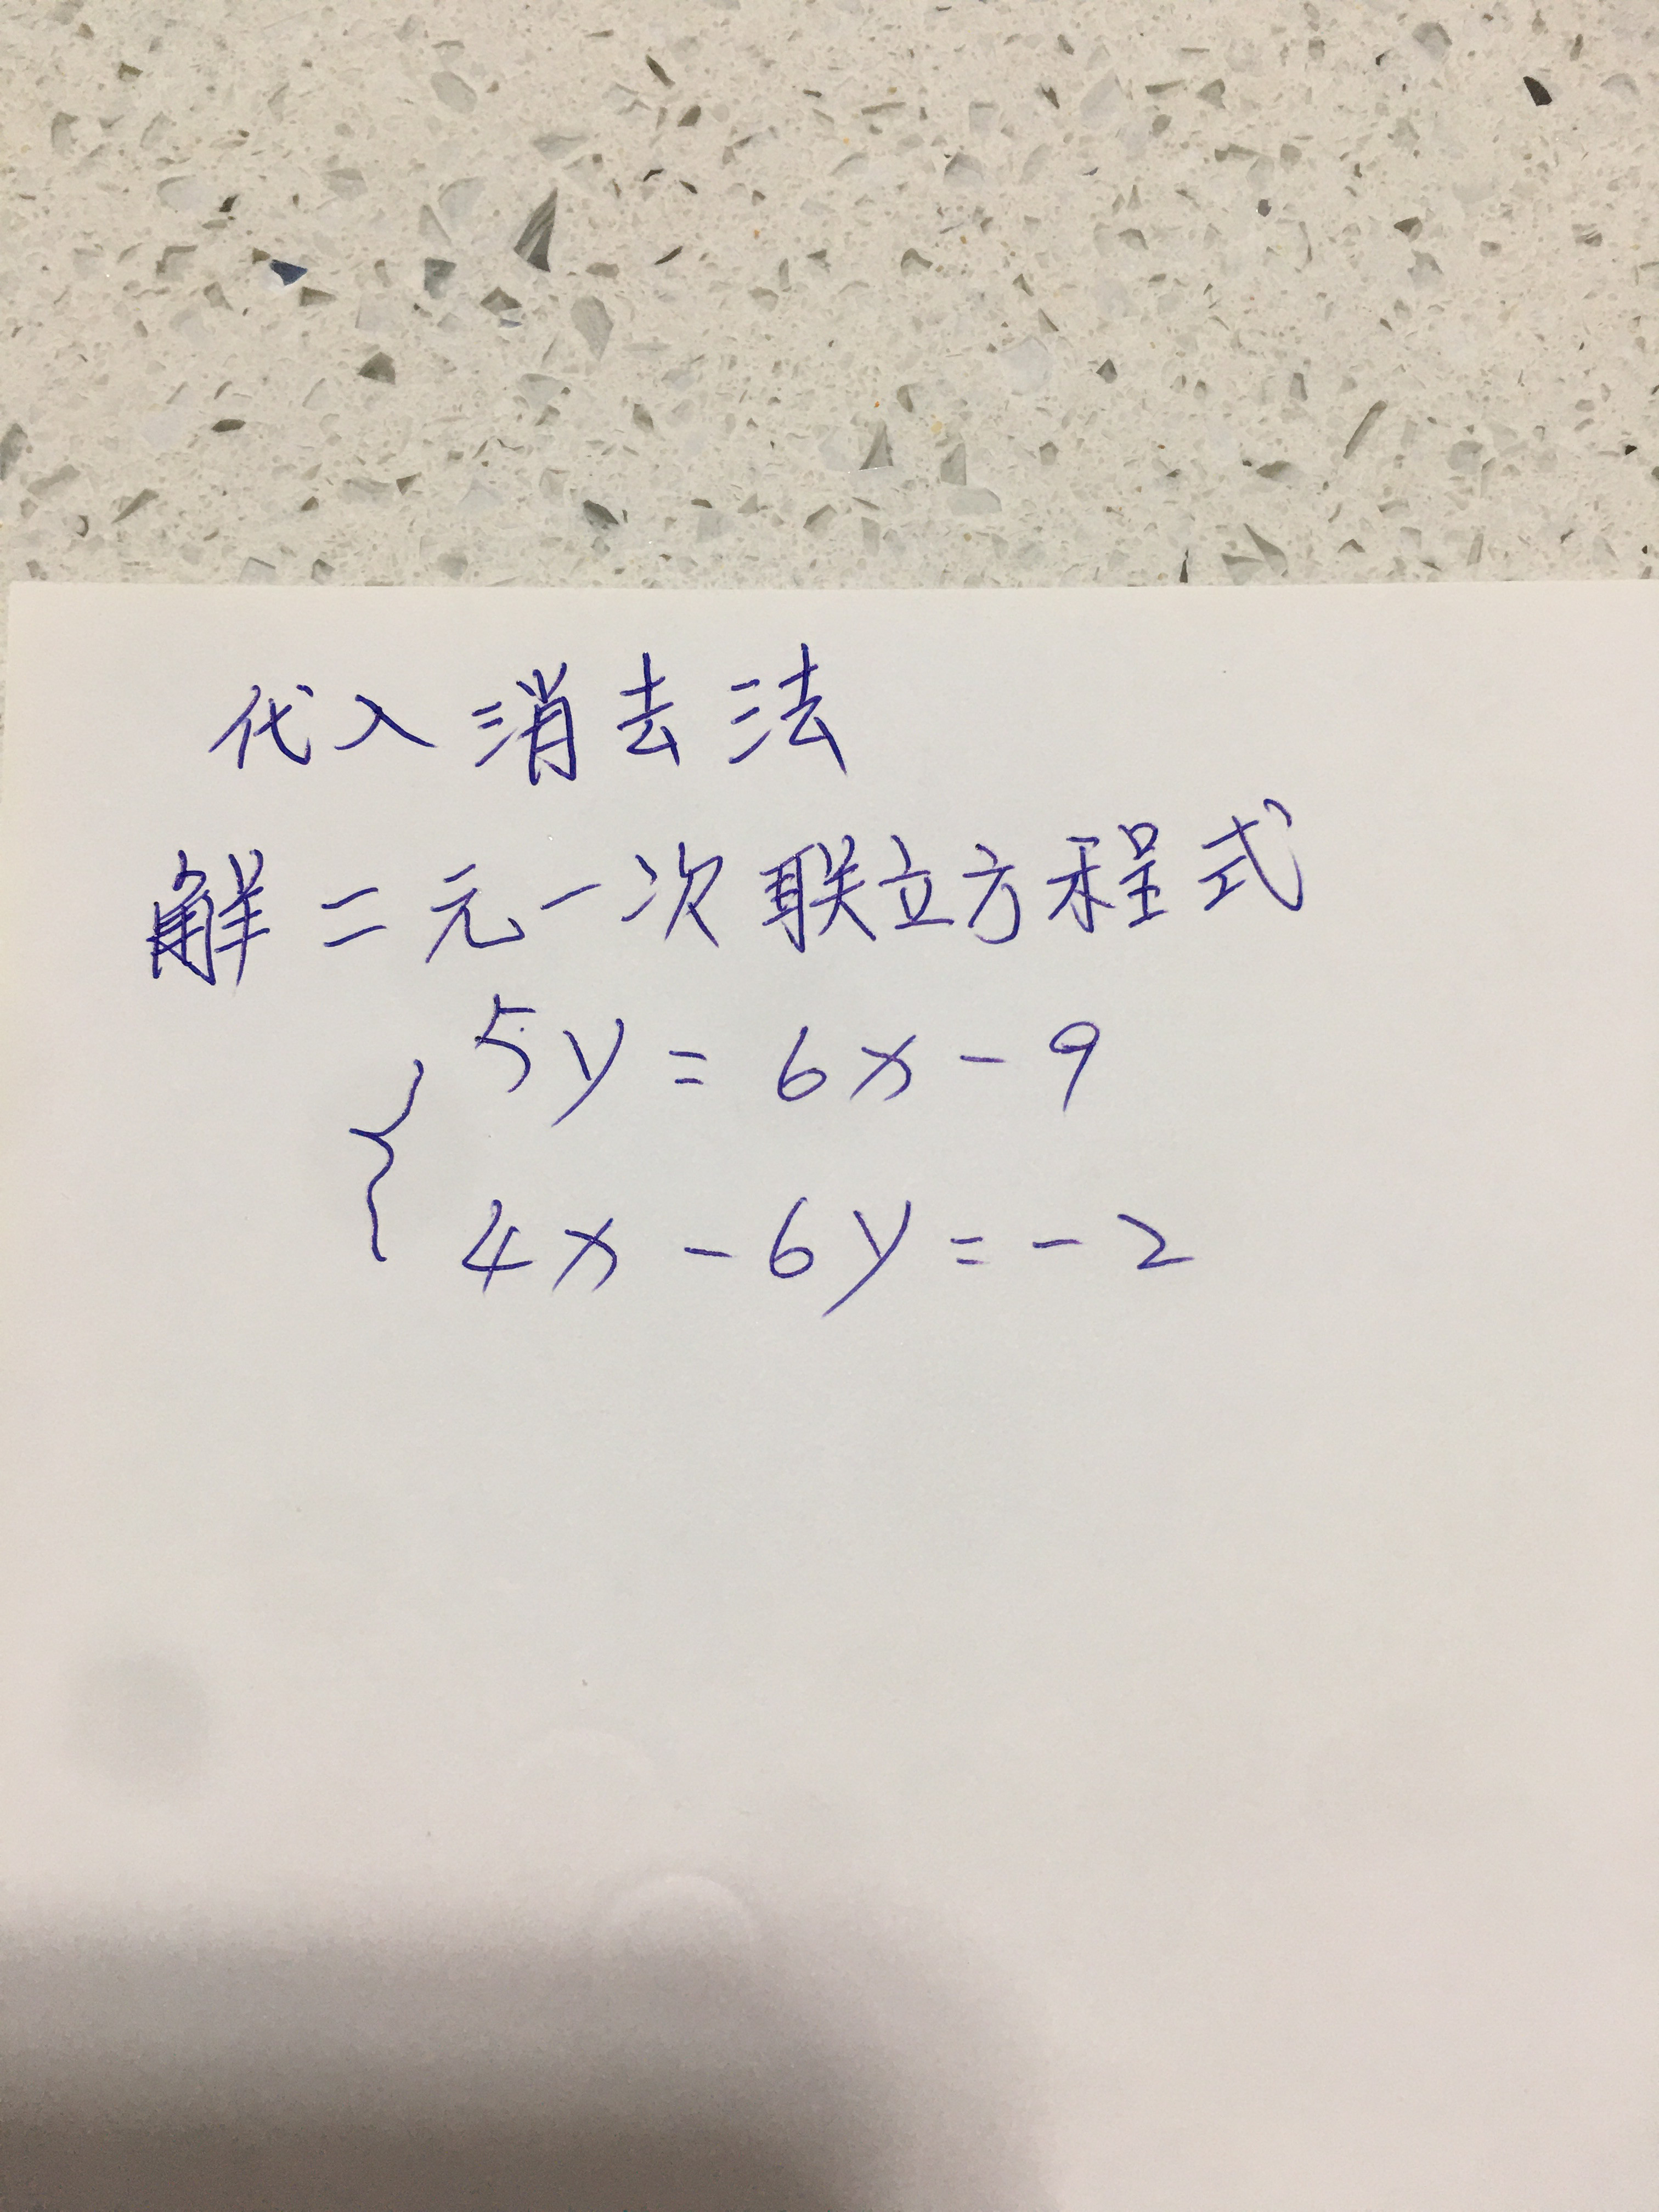 代入消去法
解二元一次联立方程式
5y = 6x - 9
4x - 6y = -2